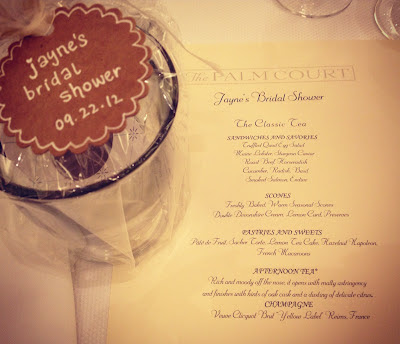 Jayne's
bridal
shower
09.22.12
The PALM COURT
Jayne's Bridal Shower
The Classic Tea
SANDWICHES AND SAVORIES
Truffled Quail Egg Salad
Maine Lobster, Sturgeon Caviar
Roast Beef, Horseradish
Cucumber, Radish, Basil
Smoked Salmon,
SCONES
Freshly Baked, Warm Seasonal Scones
Double Devonshire Cream, Lemon Curd, Preserves
PASTRIES AND SWEETS
Pate de Fruit, Sacher Torte, Lemon Tea Cake, Hazelnut Napoleon,
French Macaroons
AFTERNOON TEA*
Rich and moody off the nose, it opens with malty astringency
and finishes with hints of oak cask and a dusting of delicate citrus.
CHAMPAGNE
Veuve Clicquot Brut "Yellow Label" Reims, France